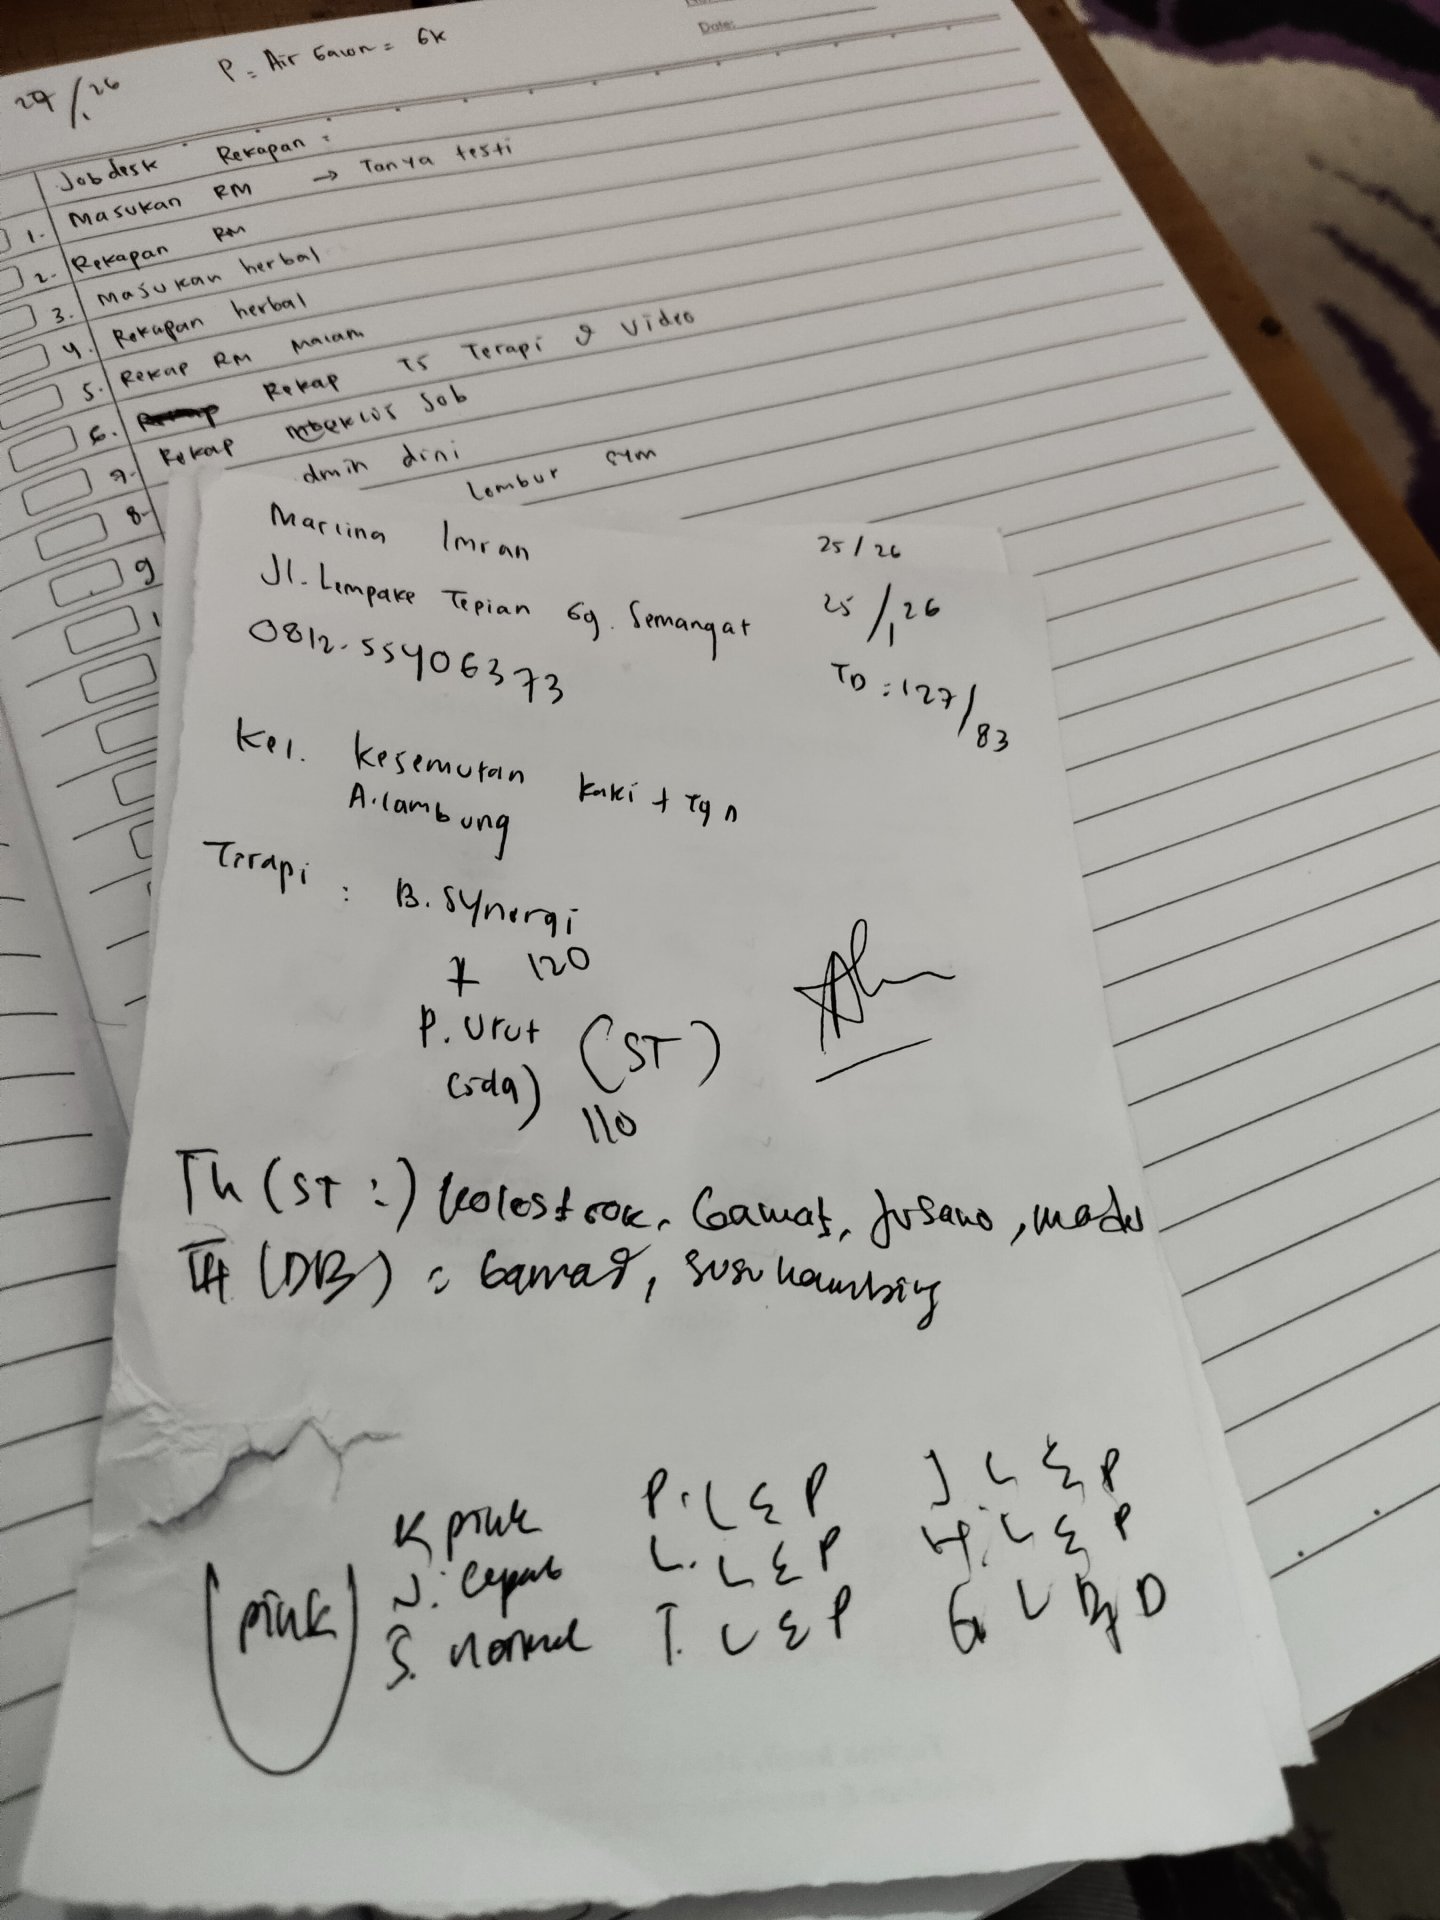 Date:
29/1 26
P = Air Galon = 6k
Jobdesk Rekapan :
1. Masukan RM → Tanya testi
2. Rekapan RM
3. Masukan herbal
4. Rekapan herbal
5. Rekap RM malam
6. Rekap TS Terapi & Video
7. Rekap Job
8. dmin dini
9 Lembur sym
Marlina Imran
25/26
Jl. Lempake Tepian Gg. Semangat
25/1 26
0812-55406373
TD : 127/83
Kel. Kesemutan kaki + Tgn
A. lambung
Terapi : B. Synergi
+ 120
P. Urut (ST)
110
Th (ST :) Kolestrok, Gamat, Jusano, madu
TH (DB) : Gamat, susu kambing
K pink P. L Σ P J L Σ P
N. Cepat L. L Σ P H. L Σ P
(pink) S. normal T. L Σ P G L D